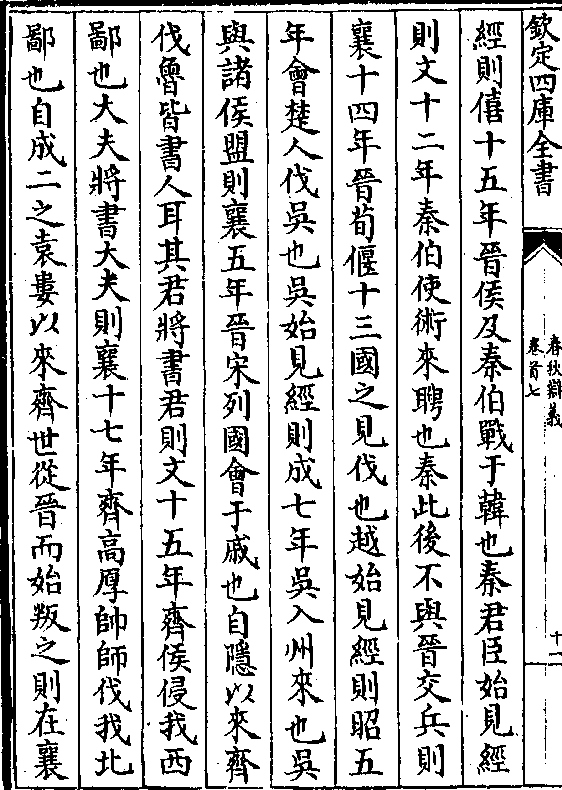 欽定四庫全書
春秋辯義
卷首七
十二
經則僖十五年晉侯及秦伯戰于韓也秦君臣始見經
則文十二年秦伯使術來聘也秦此後不與晉交兵則
襄十四年晉荀偃十三國之見伐也越始見經則昭五
年會楚人伐吳也吳始見經則成七年吳入州來也吳
與諸侯盟則襄五年晉宋列國會于戚也自隱以來齊
伐魯皆書人耳其君將書君則文十五年齊侯侵我西
鄙也大夫將書大夫則襄十七年齊高厚帥師伐我北
鄙也自成二之袁婁以來齊世從晉而始叛之則在襄